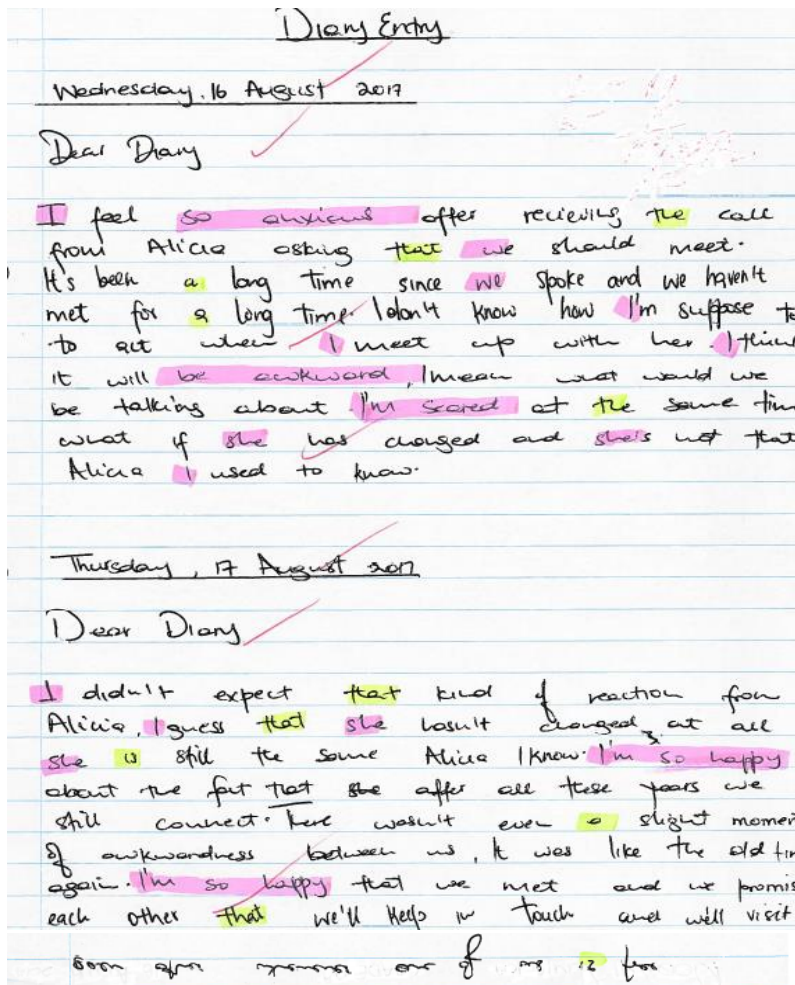 Diary Entry
Wednesday, 16 August 2017
Dear Diary
I feel so anxious after recieving the call
from Alicia asking that we should meet.
It's been a long time since we spoke and we haven't
met for a long time. I don't know how I'm suppose to
to act when I meet up with her. I think
it will be awkward, I mean what would we
be talking about. I'm scared at the same tim
what if she has changed and she's not that
Alicia I used to know.
Thursday, 17 August 2017
Dear Diary
I didn't expect that kind of reaction from
Alicia, I guess that she hasn't changed at all
she is still the same Alicia I know. I'm so happy
about the fact that she after all these years we
still connect. There wasn't even a slight momen
of awkwardness between us, It was like the old tim
again. I'm so happy that we met and we promis
each other that we'll keep in touch and we'll visit
one of us is